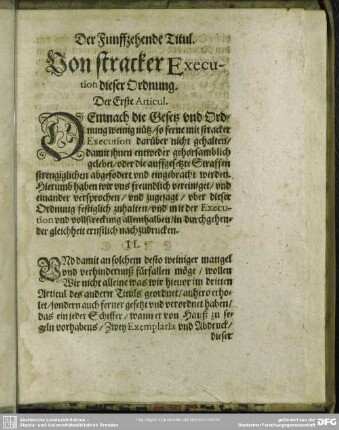 Der Funffzehende Titul.
Von stracker Execu-
tion dieser Ordnung.
Der Erste Articul.
DEmnach die Gesetz vnd Ord-
nung weinig nütz/ so ferne mit stracker
Execution darüber nicht gehalten/
damit ihnen entweder gehorsamblich
gelebet/ oder die auffgesetzte Straffen
strengiglichen abgefodert vnd eingebracht werden.
Hierumb haben wir vns freundlich vereiniget/ vnd
einander versprochen/ vnd zugesagt/ vber dieser
Ordnung festiglich zuhalten/ vnd mit der Execu-
tion vnd vollstreckung allenthalben/ in durchgehen-
der gleichheit ernstlich nachzudrucken.
II.
VNd damit an solchem desto weiniger mangel
vnd verhindernuß fürfallen möge/ wollen
Wir nicht alleine was wir hievor im dritten
Articul des andern Tituls geordnet/ anhero erho-
let/ sondern auch ferner gesetzt vnd verordnet haben/
das ein jeder Schiffer/ wann er von Hauß zu se-
geln vorhabens/ Zwey Exemplaria vnd Abdruck/
dieser